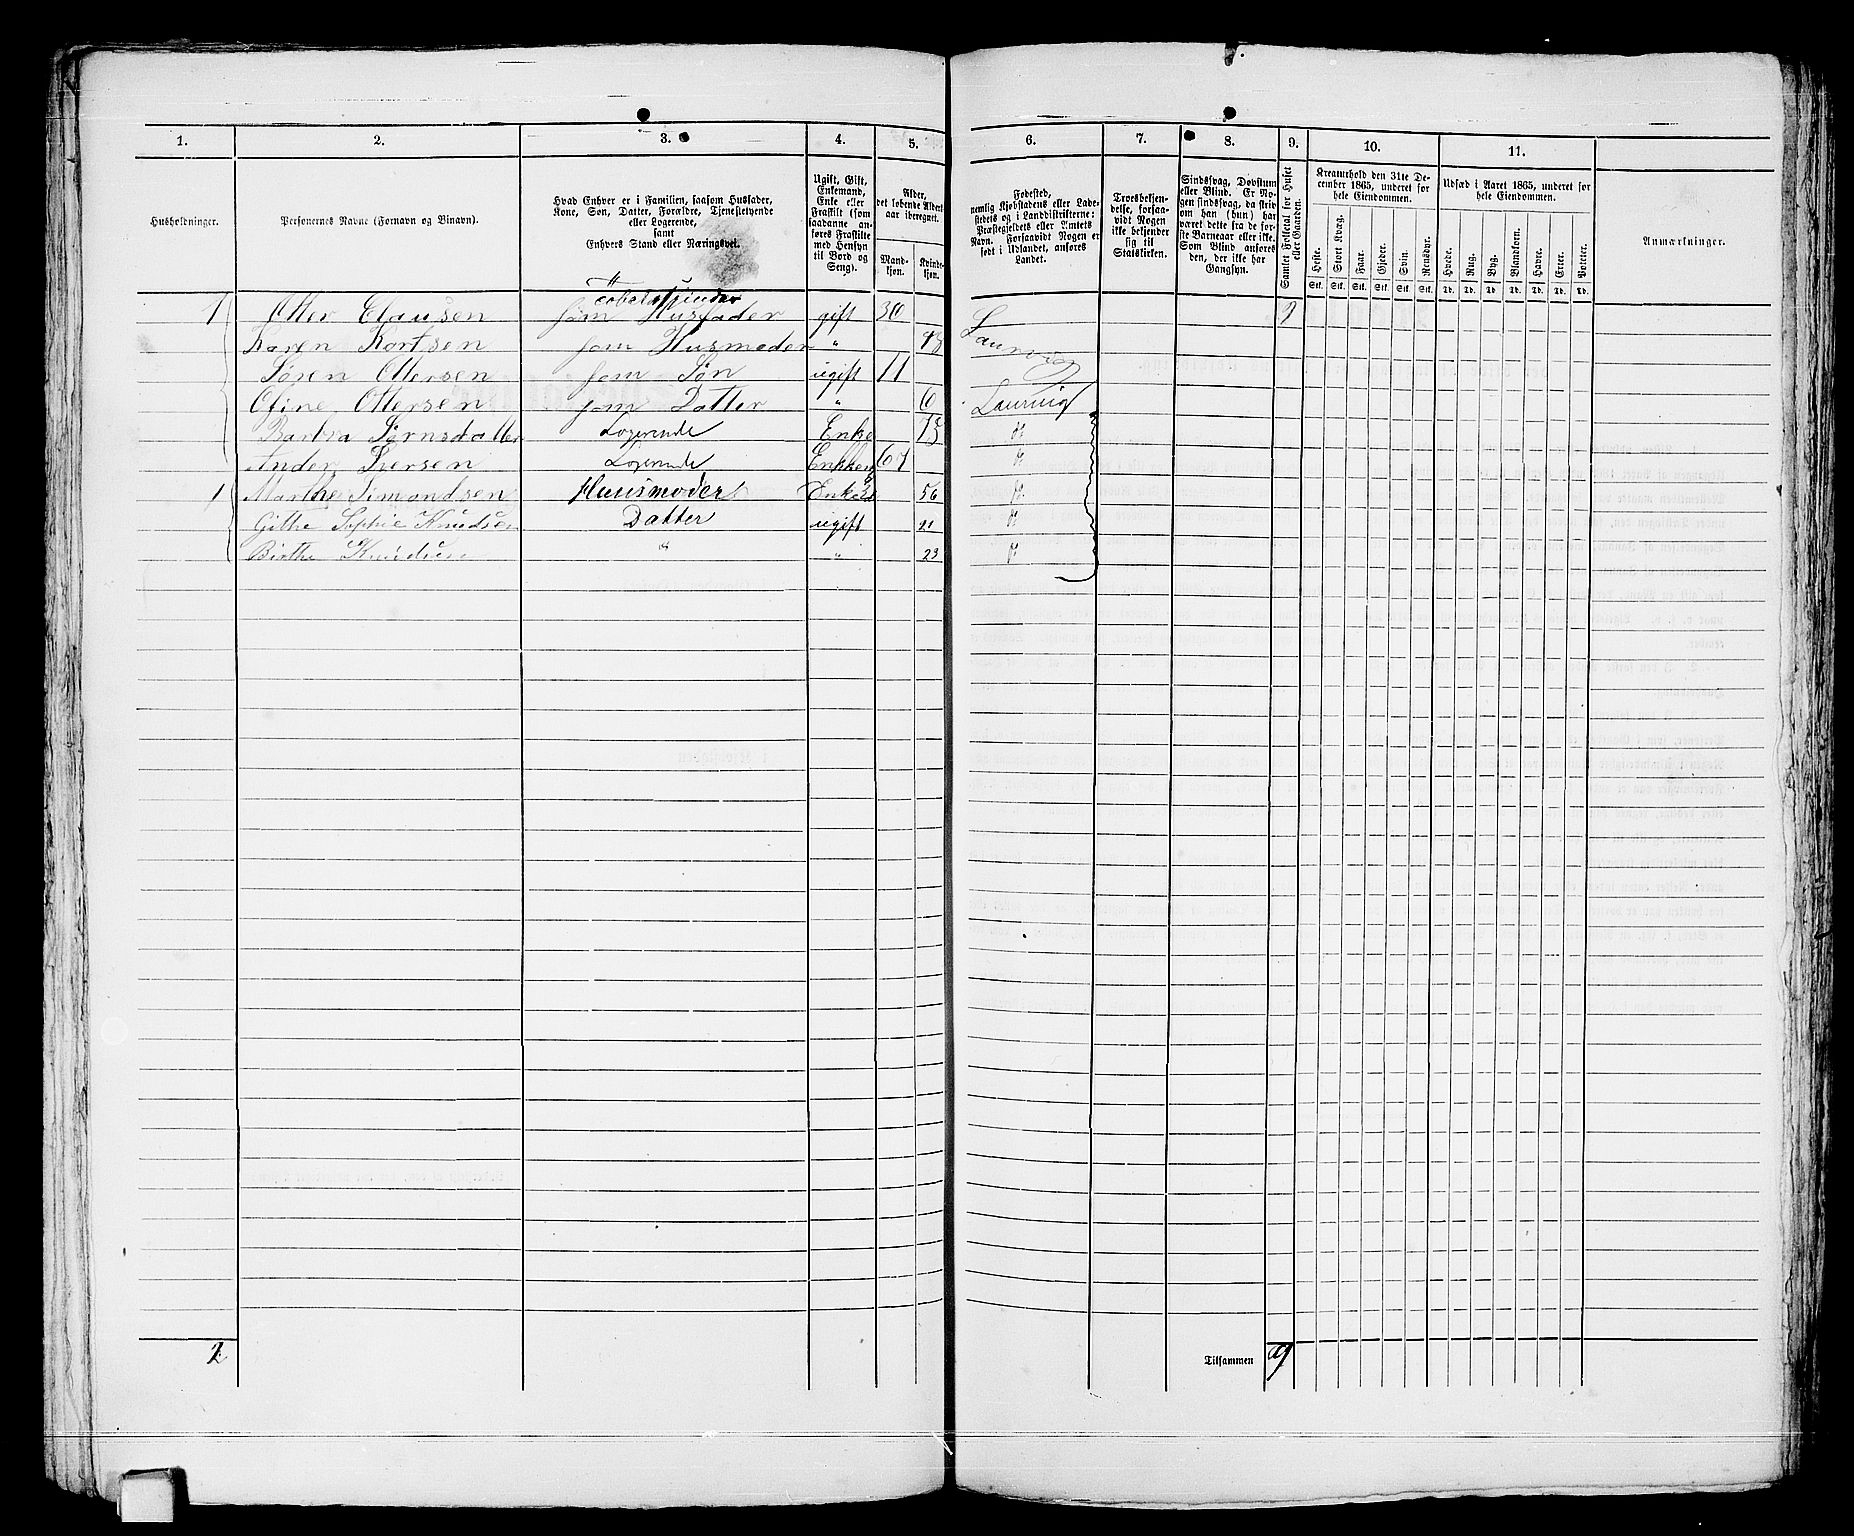 1. 2. 3. 4. 5. 6. 7. 8. 9. 10. 11.
Husholdninger.
Personernes Navne (Fornavn og Binavn).
Hvad Enhver er i Familien, saasom Husfader,
Kone, Søn, Datter, Forældre, Tjenestetyende
eller Logerende,
samt
Enhvers Stand eller Næringsvei.
Ugift, Gift,
Enkemand,
Enke eller
Fraskilt (som
saadanne an-
føres Fraskilte
med Hensyn
til Bord og
Seng).
Alder,
det løbende Alders-
aar iberegnet.
Mand-
kjøn.
Kvinde-
kjøn.
Fødested,
nemlig Kjøbstadens eller Lade-
stedets og i Landdistrikterne:
Præstegjeldets eller Amtets
Navn. Forsaavidt Nogen er
født i Udlandet, anføres
Landet.
Troesbekjen-
delse, forsaa-
vidt Nogen
ikke bekjender
sig til
Statskirken.
Sindssvag, Døvstum
eller Blind. Er No-
gen sindssvag, da skriv
om han (hun) har
været dette fra de før-
ste Barneaar eller ikke.
Som Blind anføres
den, der ikke har
Gangsyn.
Samlet Folketal for Huset
eller Gaarden.
Kreaturhold den 31te De-
cember 1865, underet for
hele Eiendommen.
Heste. Stort Kvæg. Faar. Gjeder. Svin. Rensdyr.
Stk. Stk. Stk. Stk. Stk. Stk.
Udsæd i Aaret 1865, underet for
hele Eiendommen.
Hvede. Rug. Byg. Blandkorn. Havre. Erter. Poteter.
Td. Td. Td. Td. Td. Td. Td.
Anmærkninger.
1 Otter Clausen som Husfader gift 30 9
Karen Kortsen som Husmoder " Laurvig
Søren Ottersen som Søn ugift 11
Ofine Ottersen som Datter " 6 Laurvig
Barbra Sørnsdatter Logerende Enke 73 do
Anders Iversen Logerende 67 do
1 Marthe Simondsen Huusmoder Enke 56 do
Githe Sophie Knudsen Datter ugift 21 do
Birthe Knudsen " " 23 do
2 Tilsammen 9